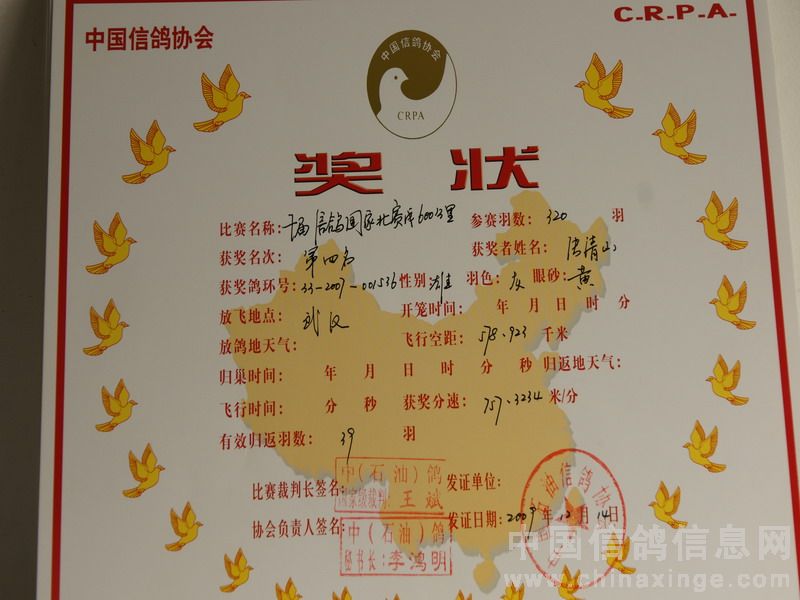 中国信鸽协会
C-R-P-A-
中国信鸽协会
CRPA
奖 状
比赛名称： 信鸽国家北赛 600公里 参赛羽数：320 羽
获奖名次：第四名 获奖者姓名：清山
获奖鸽环号：33-2007-001536 性别：雄 羽色：灰 眼砂：黄
放飞地点：武汉 开笼时间： 年 月 日 时 分
放鸽地天气： 飞行空距：578.923 千米
归巢时间： 年 月 日 时 分 秒 归返地天气：
飞行时间： 分 秒 获奖分速：757.3234 米/分
有效归返羽数：39 羽
比赛裁判长签名： 中(石油)鸽 国家级裁判：王斌 发证单位：
协会负责人签名： 中(石油)鸽 秘书长：李鸿明 发证日期：2009年12月14日
油信鸽协
中国信鸽信息网
www.chinaxinge.com